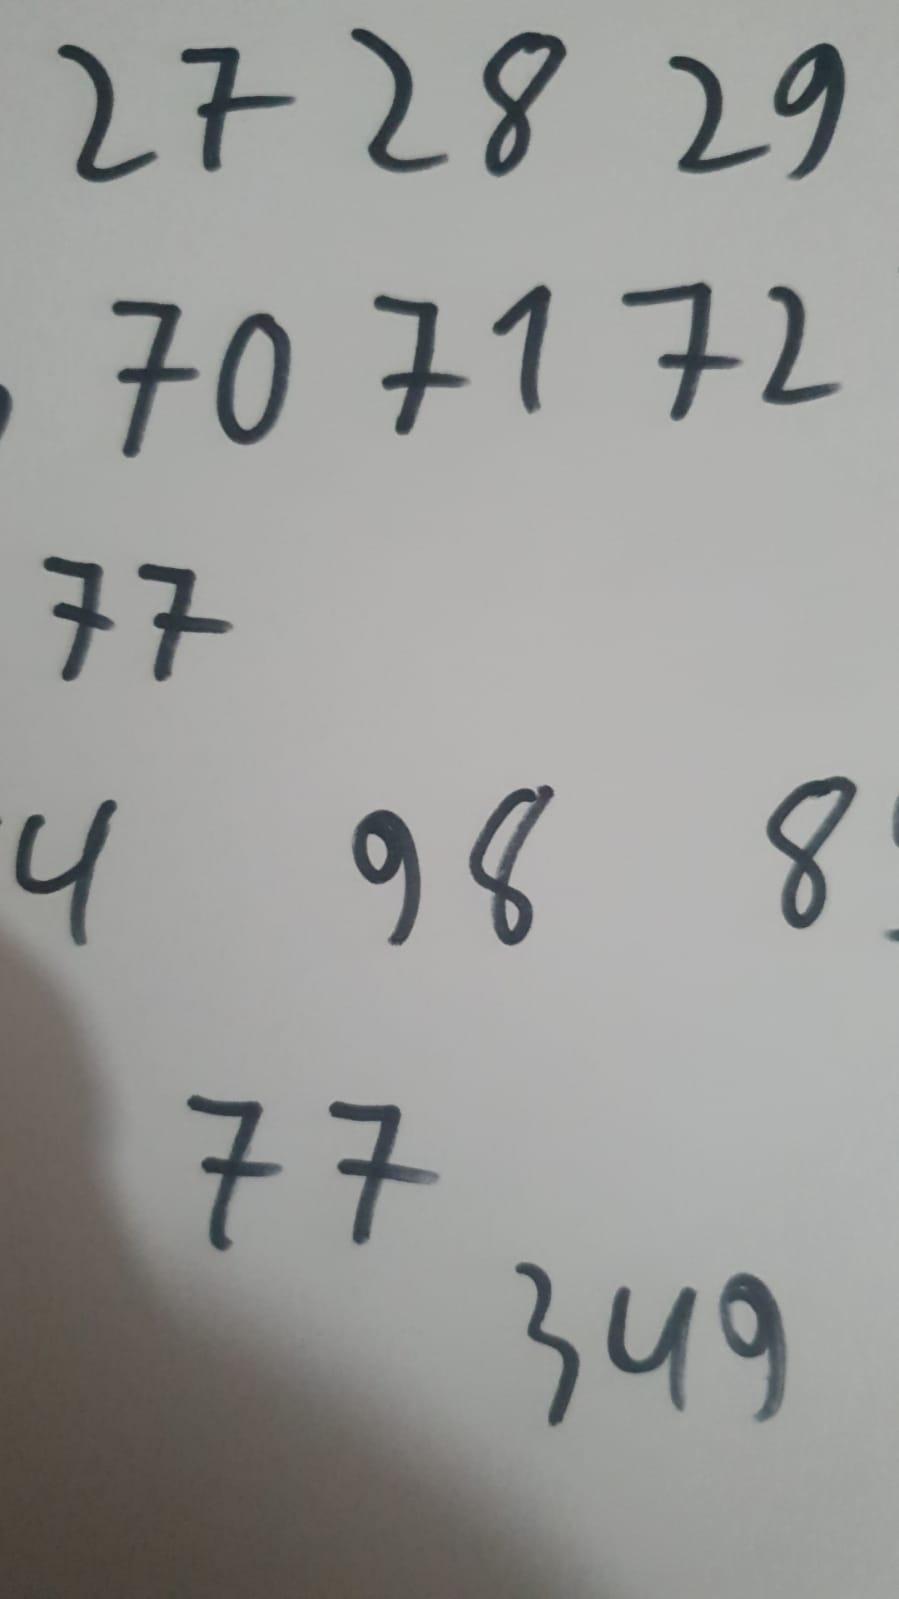 27 28 29
70 71 72
77
4 98 8
77
349